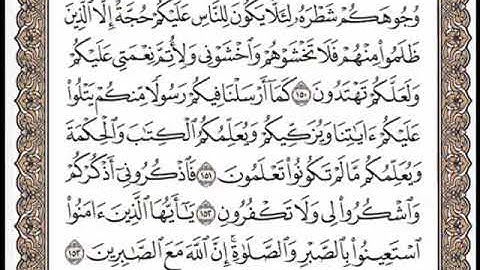 وُجُوهَكُمْ شَطْرَهُۥ لِئَلَّا يَكُونَ لِلنَّاسِ عَلَيْكُمْ حُجَّةٌ إِلَّا ٱلَّذِينَ
ظَلَمُوا۟ مِنْهُمْ فَلَا تَخْشَوْهُمْ وَٱخْشَوْنِى وَلِأُتِمَّ نِعْمَتِى عَلَيْكُمْ
وَلَعَلَّكُمْ تَهْتَدُونَ ١٥٠ كَمَآ أَرْسَلْنَا فِيكُمْ رَسُولًا مِّنكُمْ يَتْلُوا۟
عَلَيْكُمْ ءَايَٰتِنَا وَيُزَكِّيكُمْ وَيُعَلِّمُكُمُ ٱلْكِتَٰبَ وَٱلْحِكْمَةَ
وَيُعَلِّمُكُم مَّا لَمْ تَكُونُوا۟ تَعْلَمُونَ ١٥١ فَٱذْكُرُونِىٓ أَذْكُرْكُمْ
وَٱشْكُرُوا۟ لِى وَلَا تَكْفُرُونِ ١٥٢ يَٰٓأَيُّهَا ٱلَّذِينَ ءَامَنُوا۟
ٱسْتَعِينُوا۟ بِٱلصَّبْرِ وَٱلصَّلَوٰةِ ۚ إِنَّ ٱللَّهَ مَعَ ٱلصَّٰبِرِينَ ١٥٣